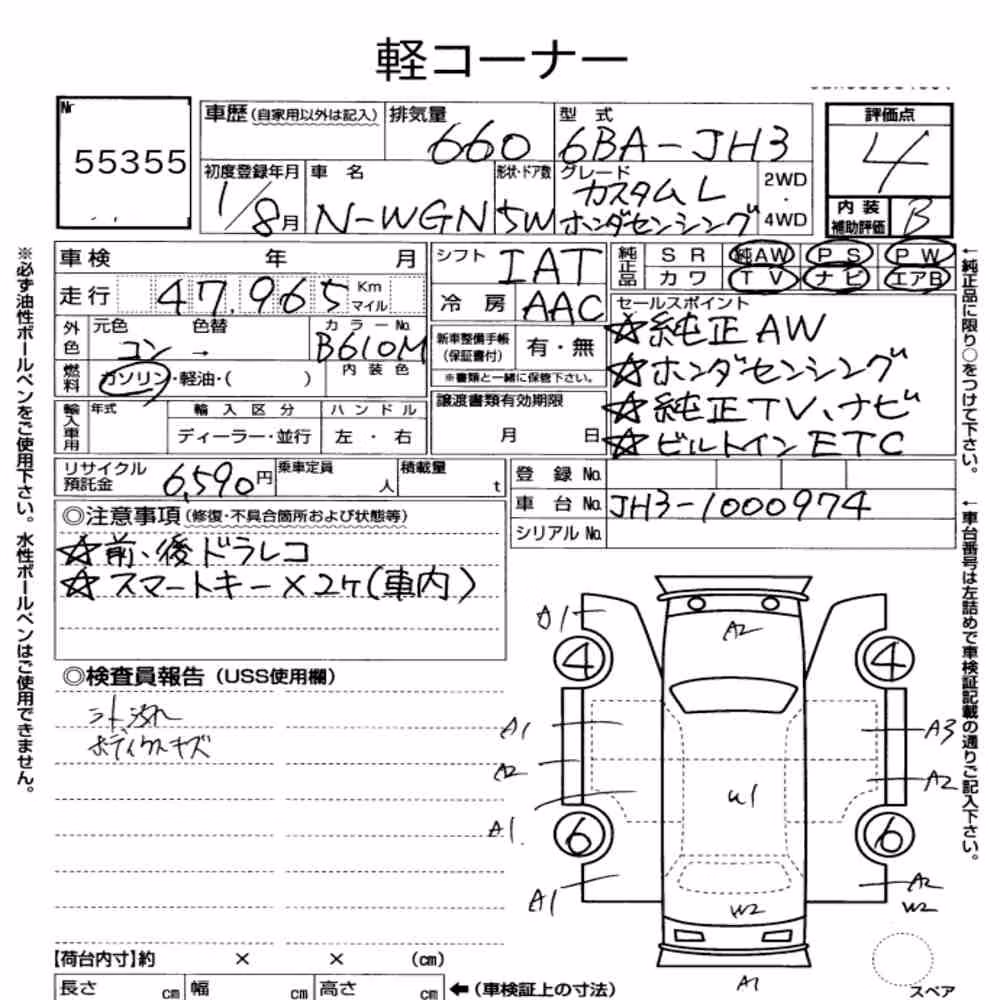 軽コーナー
Nr
55355
車歴 (自家用以外は記入)
排気量
660
型 式
6BA-JH3
評価点
4
初度登録年月
1/8月
車 名
N-WGN
形状・ドア数
5W
グレード
カスタム L
ホンダセンシング
2WD
・
4WD
内 装
補助評価
B
車 検 年 月
シフト
IAT
純正品
S R 純AW P S P W
カ ワ T V ナ ビ エアB
走 行 47,965 Km マイル
冷 房 AAC
セールスポイント
☆純正AW
☆ホンダセンシング
☆純正TV、ナビ
☆ビルトインETC
外色
元色 色替
コン →
カラーNo.
B610M
新車整備手帳
(保証書付)
有・無
※書類と一緒に保管下さい。
燃料
ガソリン・軽油・( )
内 装 色
輸入車用
年式
輸 入 区 分
ディーラー・並行
ハ ン ド ル
左 ・ 右
譲渡書類有効期限
月 日
リサイクル
預託金
6,590円
乗車定員
人
積載量
t
登 録 No.
車 台 No. JH3-1000974
シリアル No.
◎注意事項 (修復・不具合箇所および状態等)
☆前、後ドラレコ
☆スマートキー×2ケ(車内)
◎検査員報告 (USS使用欄)
シート汚れ
A1
A2
4
4
A1
A3
A2
A2
U1
A1
6
6
A1
A2
W2
W2
A1
スペア
【荷台内寸】約 × × (cm)
長さ cm 幅 cm 高さ cm ←(車検証上の寸法)
※必ず油性ボールペンをご使用下さい。水性ボールペンはご使用できません。
←純正品に限り○をつけて下さい。
←車台番号は左詰めで車検証記載の通りご記入下さい。